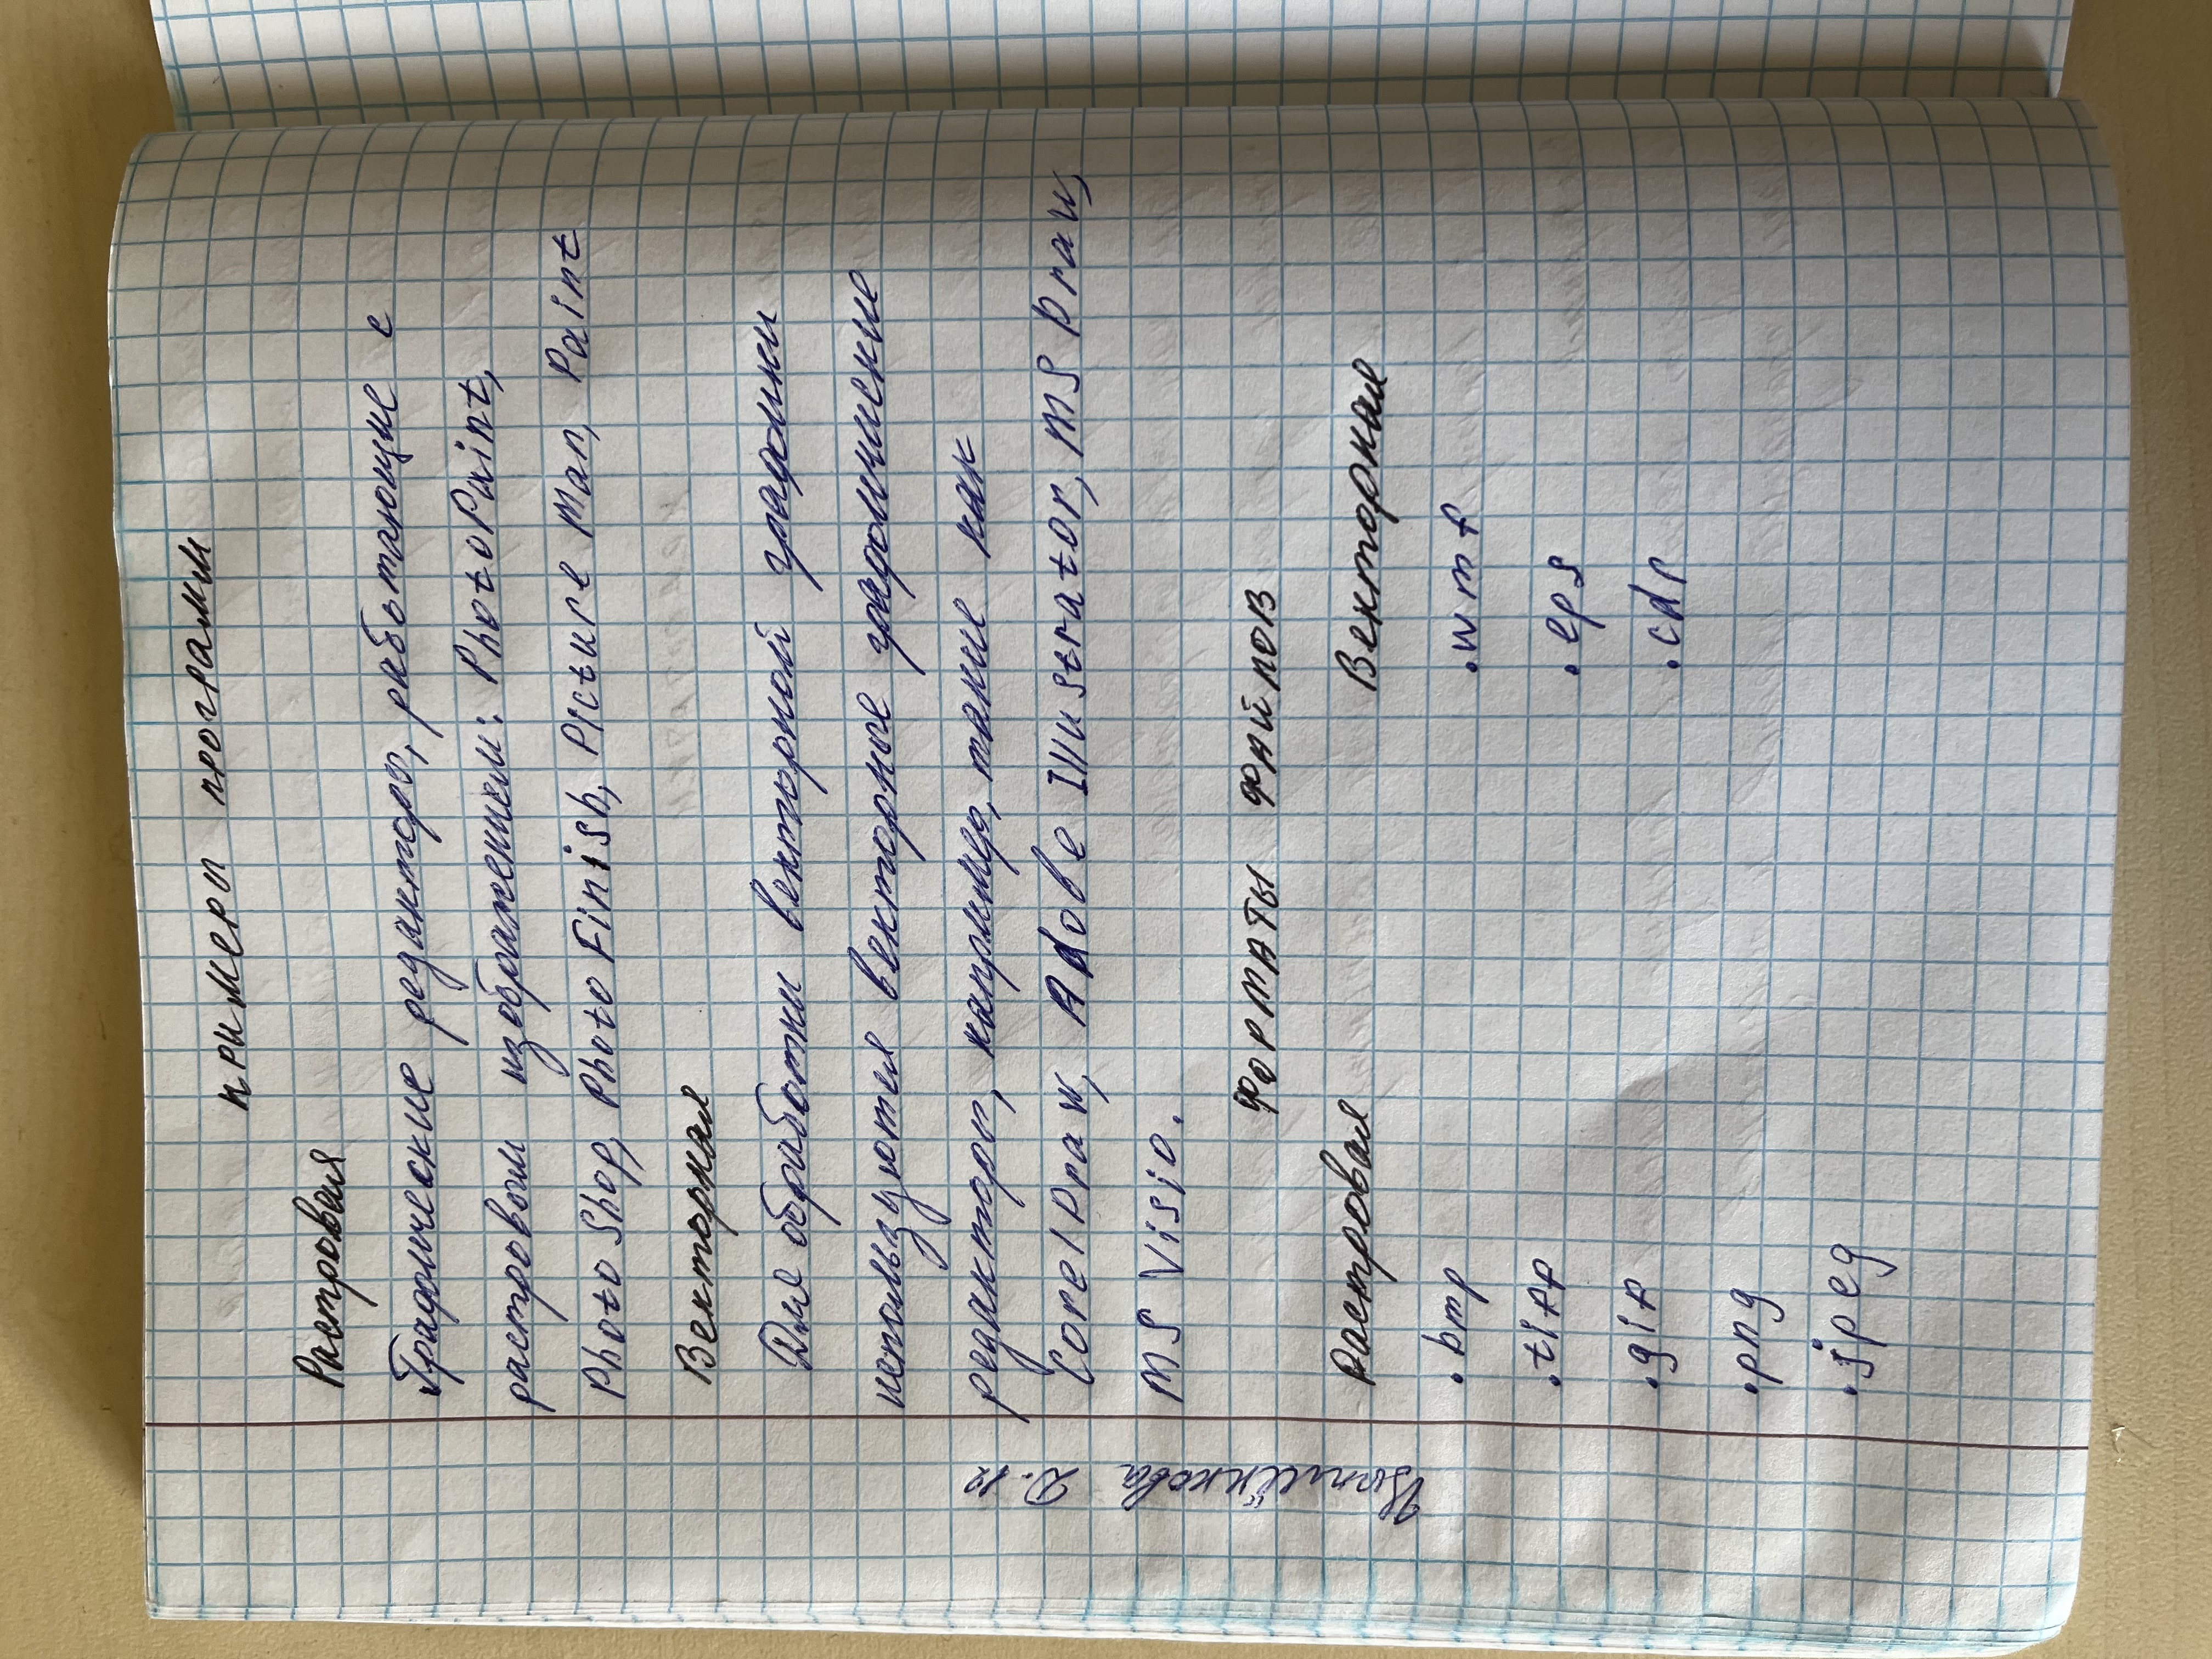 примеры программ
Растровая
Графические редакторы, работающие с
растровым изображением: PhotoPaint,
Photo Shop, Photo Finish, Picture Man, Paint
Векторная
Для обработки векторной графики
используются векторные графические
редакторы, например, такие как
CorelDraw, Adobe Illustrator, MS Draw,
MS Visio.
ФОРМАТЫ ФАЙЛОВ
Растровая Векторная
.bmp .wmf
.tiff .eps
.gif .cdr
.png
.jpeg